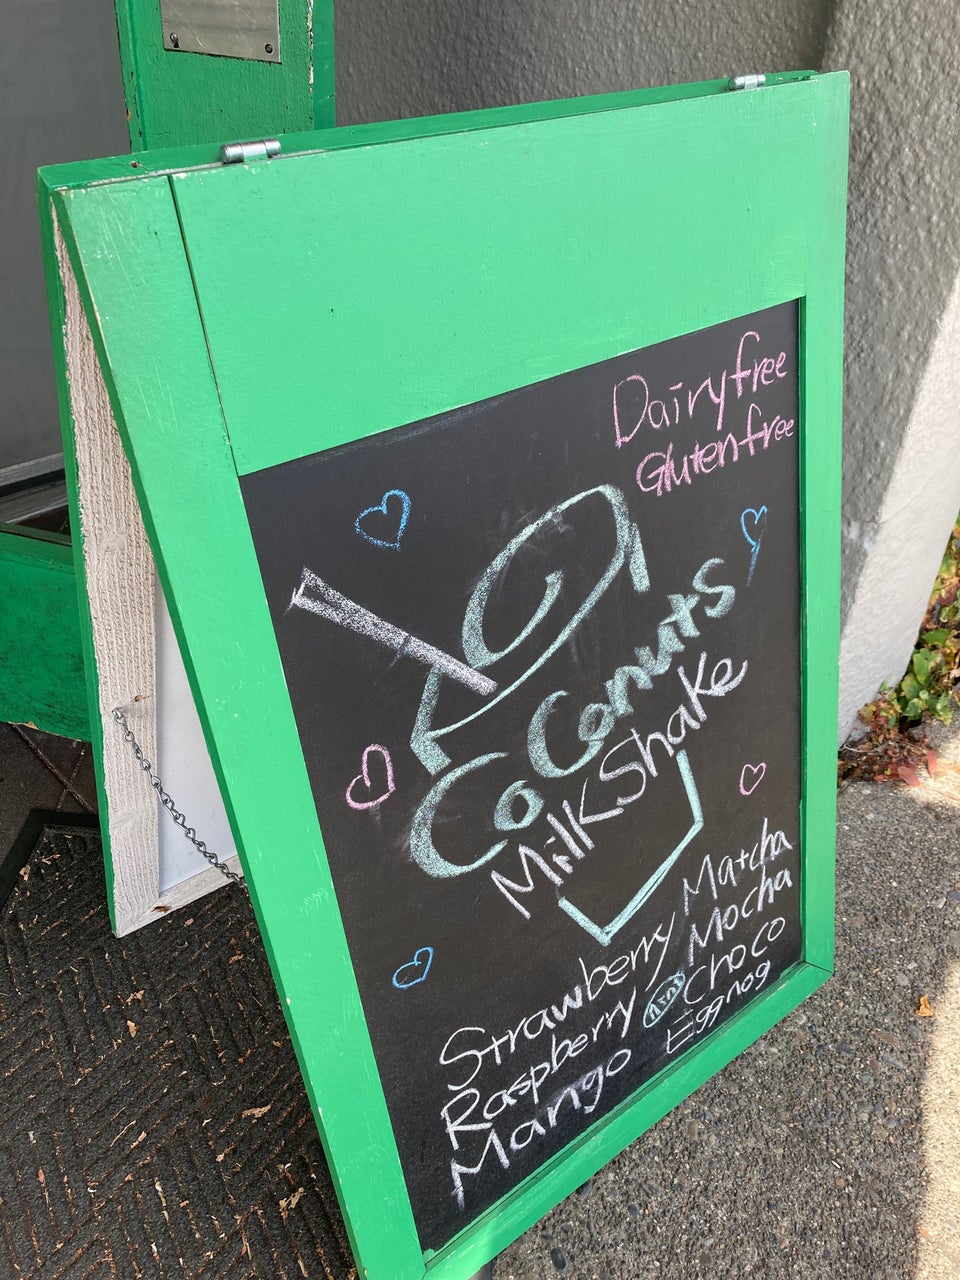 Dairy free
Gluten free
CoConuts
MilkShake
Strawberry Matcha
Raspberry Mint Mocha
Mango Choco
Eggnog